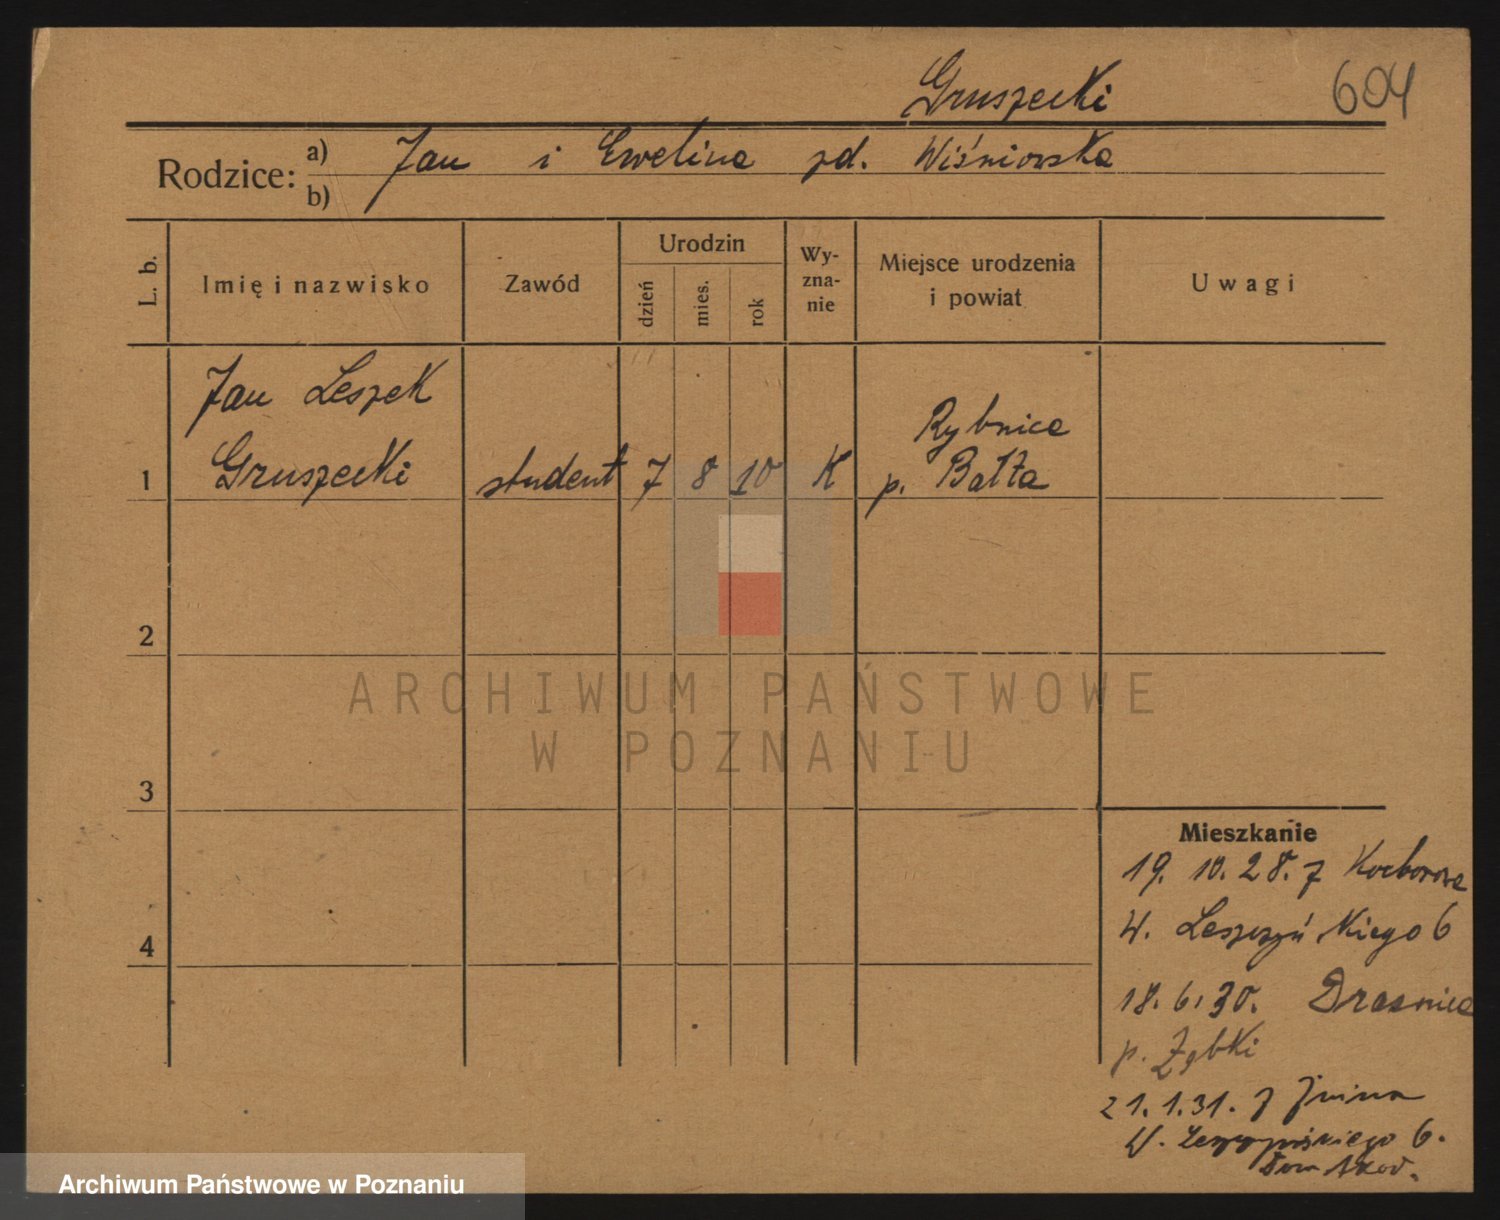 Gruszecki
604
Rodzice: a) Jan i Ewelina zd. Wiśniowska
b)
L. b.
Imię i nazwisko
Zawód
Urodzin
dzień
mies.
rok
Wy-
zna-
nie
Miejsce urodzenia
i powiat
Uwagi
Jan Leszek
Gruszecki
1
student
7
8
10
K
Rybnica
p. Bałta
2
3
4
Mieszkanie
19. 10. 28. z Kocborowa
W. Leszczyńskiego 6
18. 6. 30.
p. Ząbki
21. 1. 31. z Żnina
W. Leszczyńskiego 6.
Dom Akad.
ARCHIWUM PAŃSTWOWE
W POZNANIU
Archiwum Państwowe w Poznaniu